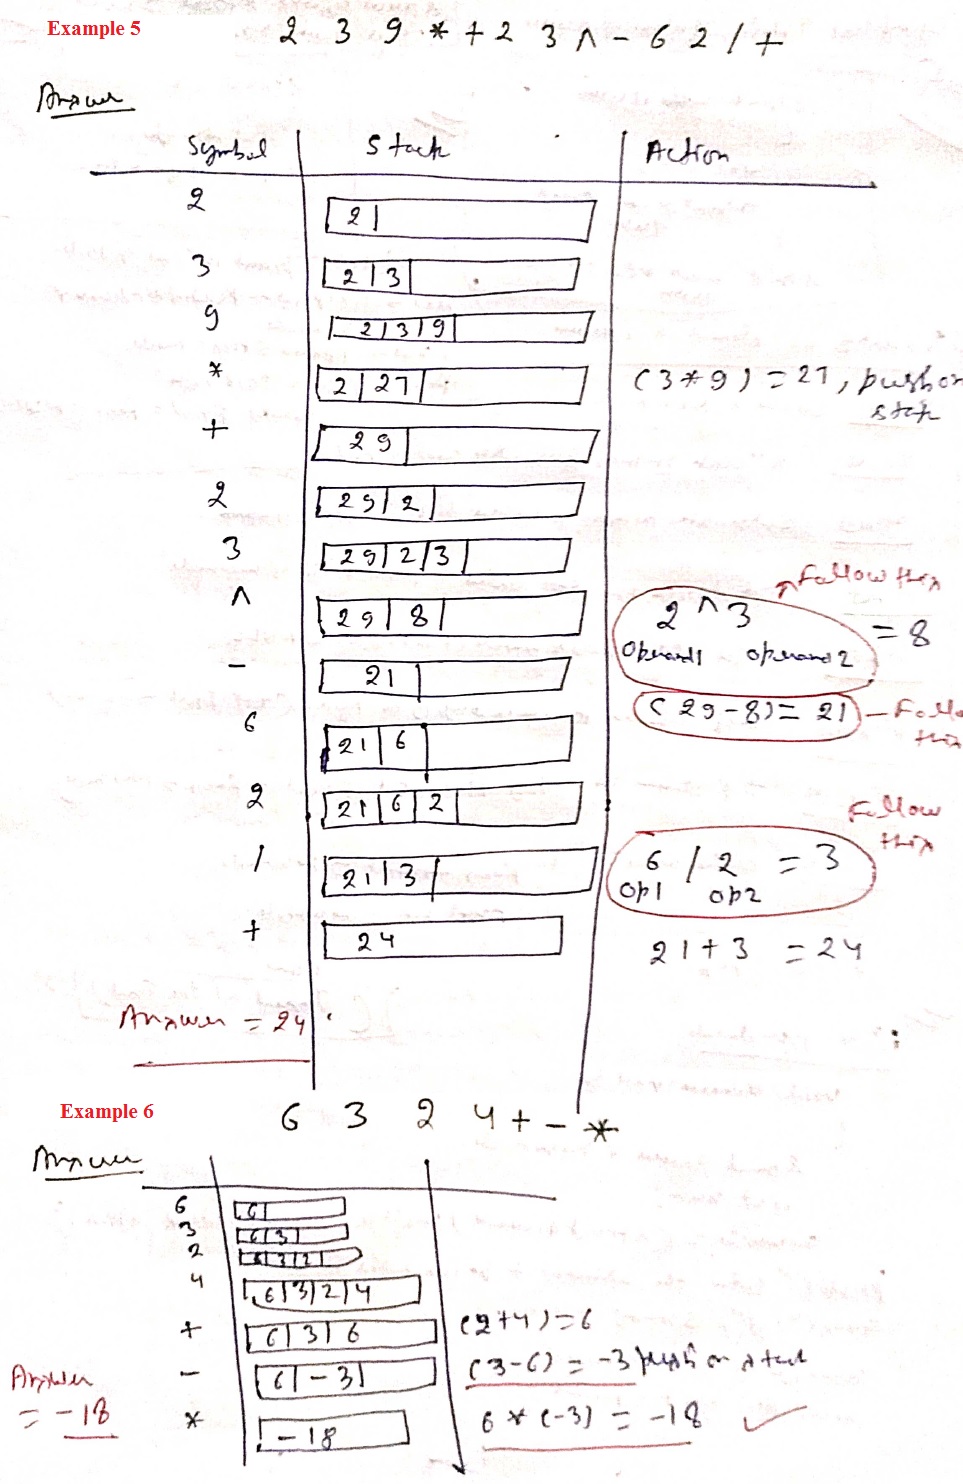 Example 5
2 3 9 * + 2 3 ^ - 6 2 / +
Answer
Symbol Stack Action
2 2
3 2 3
9 2 3 9
* 2 27 (3*9) = 27, push on stack
+ 29
2 29 2
3 29 2 3
^ 29 8 2 ^ 3 = 8 Follow this
operand1 operand2
- 21 (29-8) = 21 - Follow this
6 21 6
2 21 6 2
/ 21 3 6 / 2 = 3 Follow this
op1 op2
+ 24 21+3 = 24
Answer = 24
Example 6
6 3 2 4 + - *
Answer
6 6
3 6 3
2 6 3 2
4 6 3 2 4
+ 6 3 6 (2+4)=6
- 6 -3 (3-6) = -3 push on stack
* -18 6 * (-3) = -18
Answer
= -18